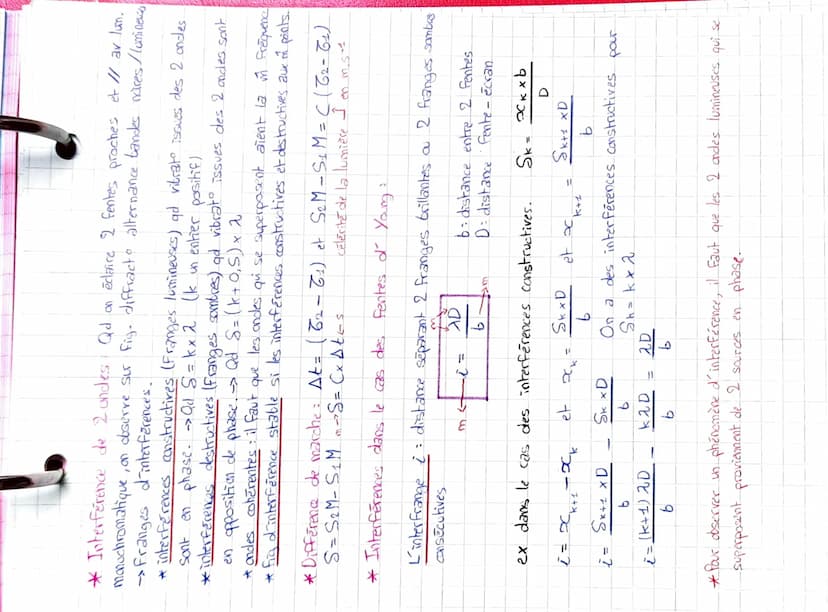 * Interférence de 2 ondes : Qd on éclaire 2 fentes proches et // av lum.
monochromatique, on observe sur fig. diffract° alternance bandes noires/lumineuses
→ franges d'interférences.
* interférences constructives (franges lumineuses) qd vibrat° issues des 2 ondes
sont en phase. → Qd δ = k x λ (k un entier positif)
* interférences destructives (franges sombres) qd vibrat° issues des 2 ondes sont
en opposition de phase. → Qd δ = (k + 0,5) x λ
* ondes cohérentes : il faut que les ondes qui se superposent aient la m̂ fréquence
* Fig d'interférence stable si les interférences constructives et destructives aux m̂ points.
* Différence de marche : Δt = (τ2 - τ1) et S2M - S1M = C (τ2 - τ1)
δ = S2M - S1M m → δ = C x Δt ← s célérité de la lumière ↑ en m.s⁻¹
* Interférences dans le cas des fentes d'Young :
L'interfrange i : distance séparant 2 franges brillantes ou 2 franges sombres
consécutives
m ← i = λD / b → m
b : distance entre 2 fentes
D : distance fente - écran
ex dans le cas des interférences constructives. δk = xk x b / D
i = xk+1 - xk et xk = δk x D / b et xk+1 = δk+1 x D / b
i = δk+1 x D / b - δk x D / b On a des interférences constructives pour
δk = k x λ
i = (k+1) λD / b - k λD / b = λD / b
* Pour observer un phénomène d'interférence, il faut que les 2 ondes lumineuses qui se
superposent proviennent de 2 sources en phase.